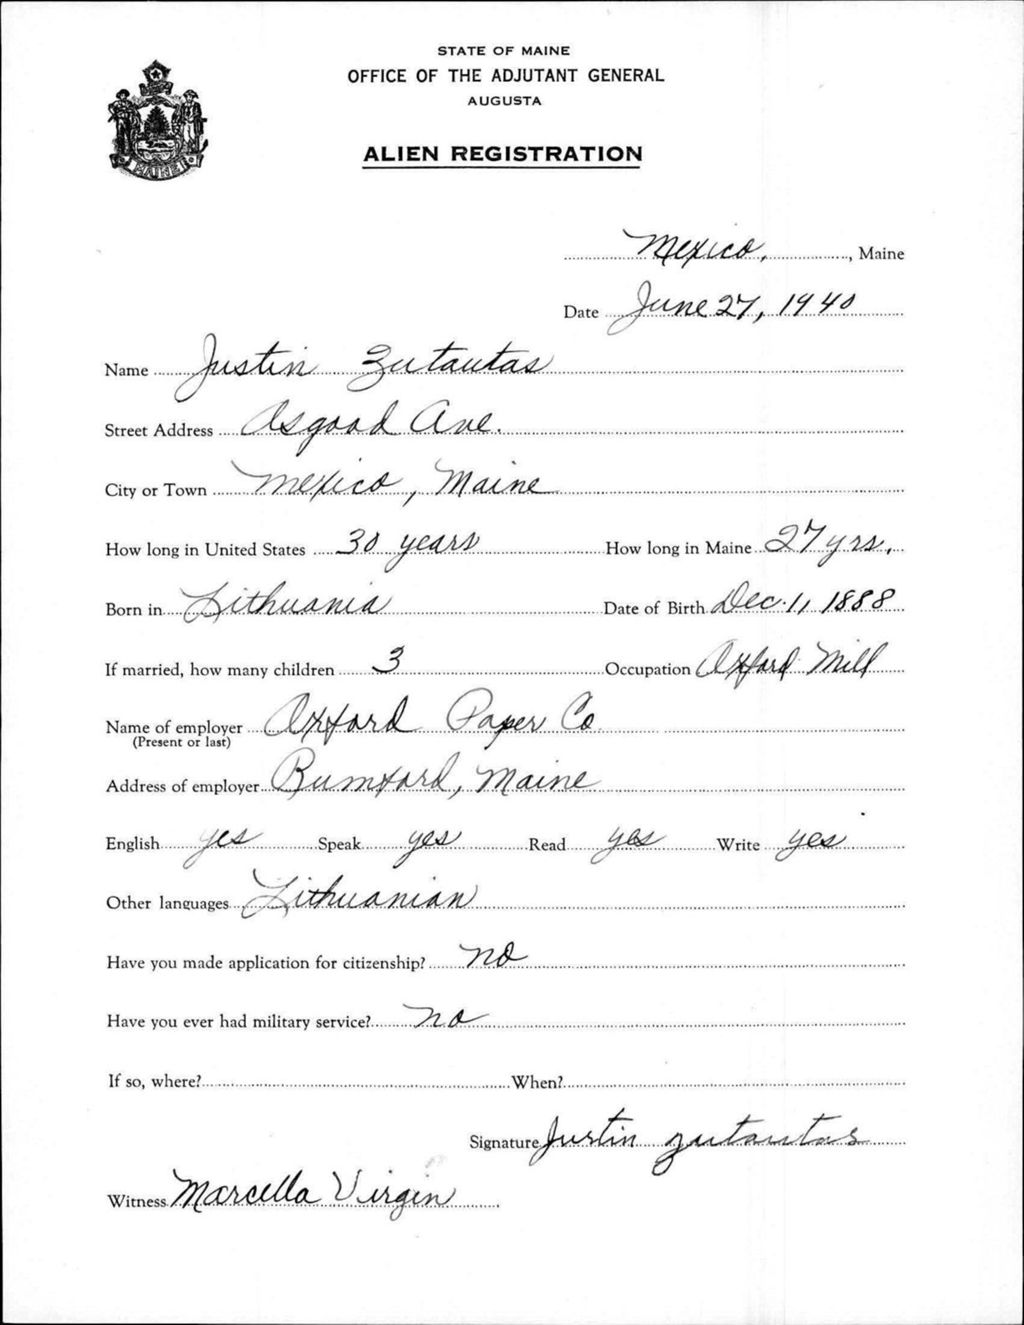 STATE OF MAINE
OFFICE OF THE ADJUTANT GENERAL
AUGUSTA
ALIEN REGISTRATION
MAINE
Mexico, , Maine
Date June 27, 1940
Name Justin Zutautas
Street Address Osgood Ave.
City or Town Mexico, Maine
How long in United States 30 years How long in Maine 27 yrs.
Born in Lithuania Date of Birth Dec. 1, 1888
If married, how many children 3 Occupation Oxford Mill
Name of employer Oxford Paper Co
(Present or last)
Address of employer Rumford, Maine
English yes Speak yes Read yes Write yes
Other languages Lithuanian
Have you made application for citizenship? no
Have you ever had military service? no
If so, where? When?
Signature Justin Zutautas
Witness Marcella Virgin